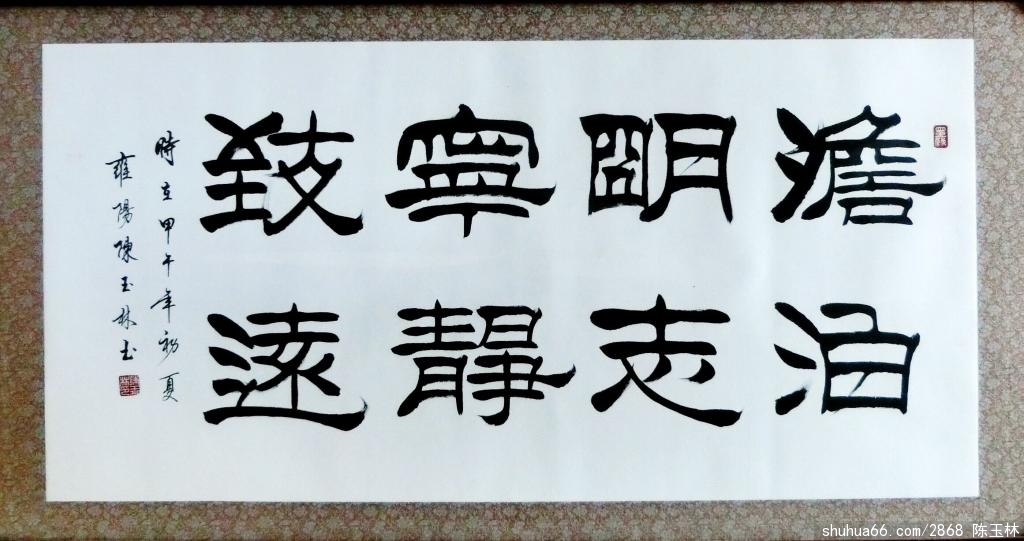 澹泊
明志
寧靜
致遠
時在甲午年初夏
雍陽陳玉林书
shuhua66.com/2868 陈玉林